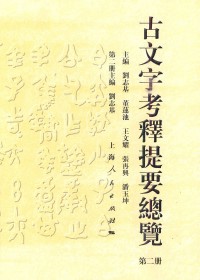 古文字考釋提要總覽
第二册
主編 劉志基 董蓮池 王文耀 張再興 潘玉坤
第二册主編 劉志基
上海人民出版社